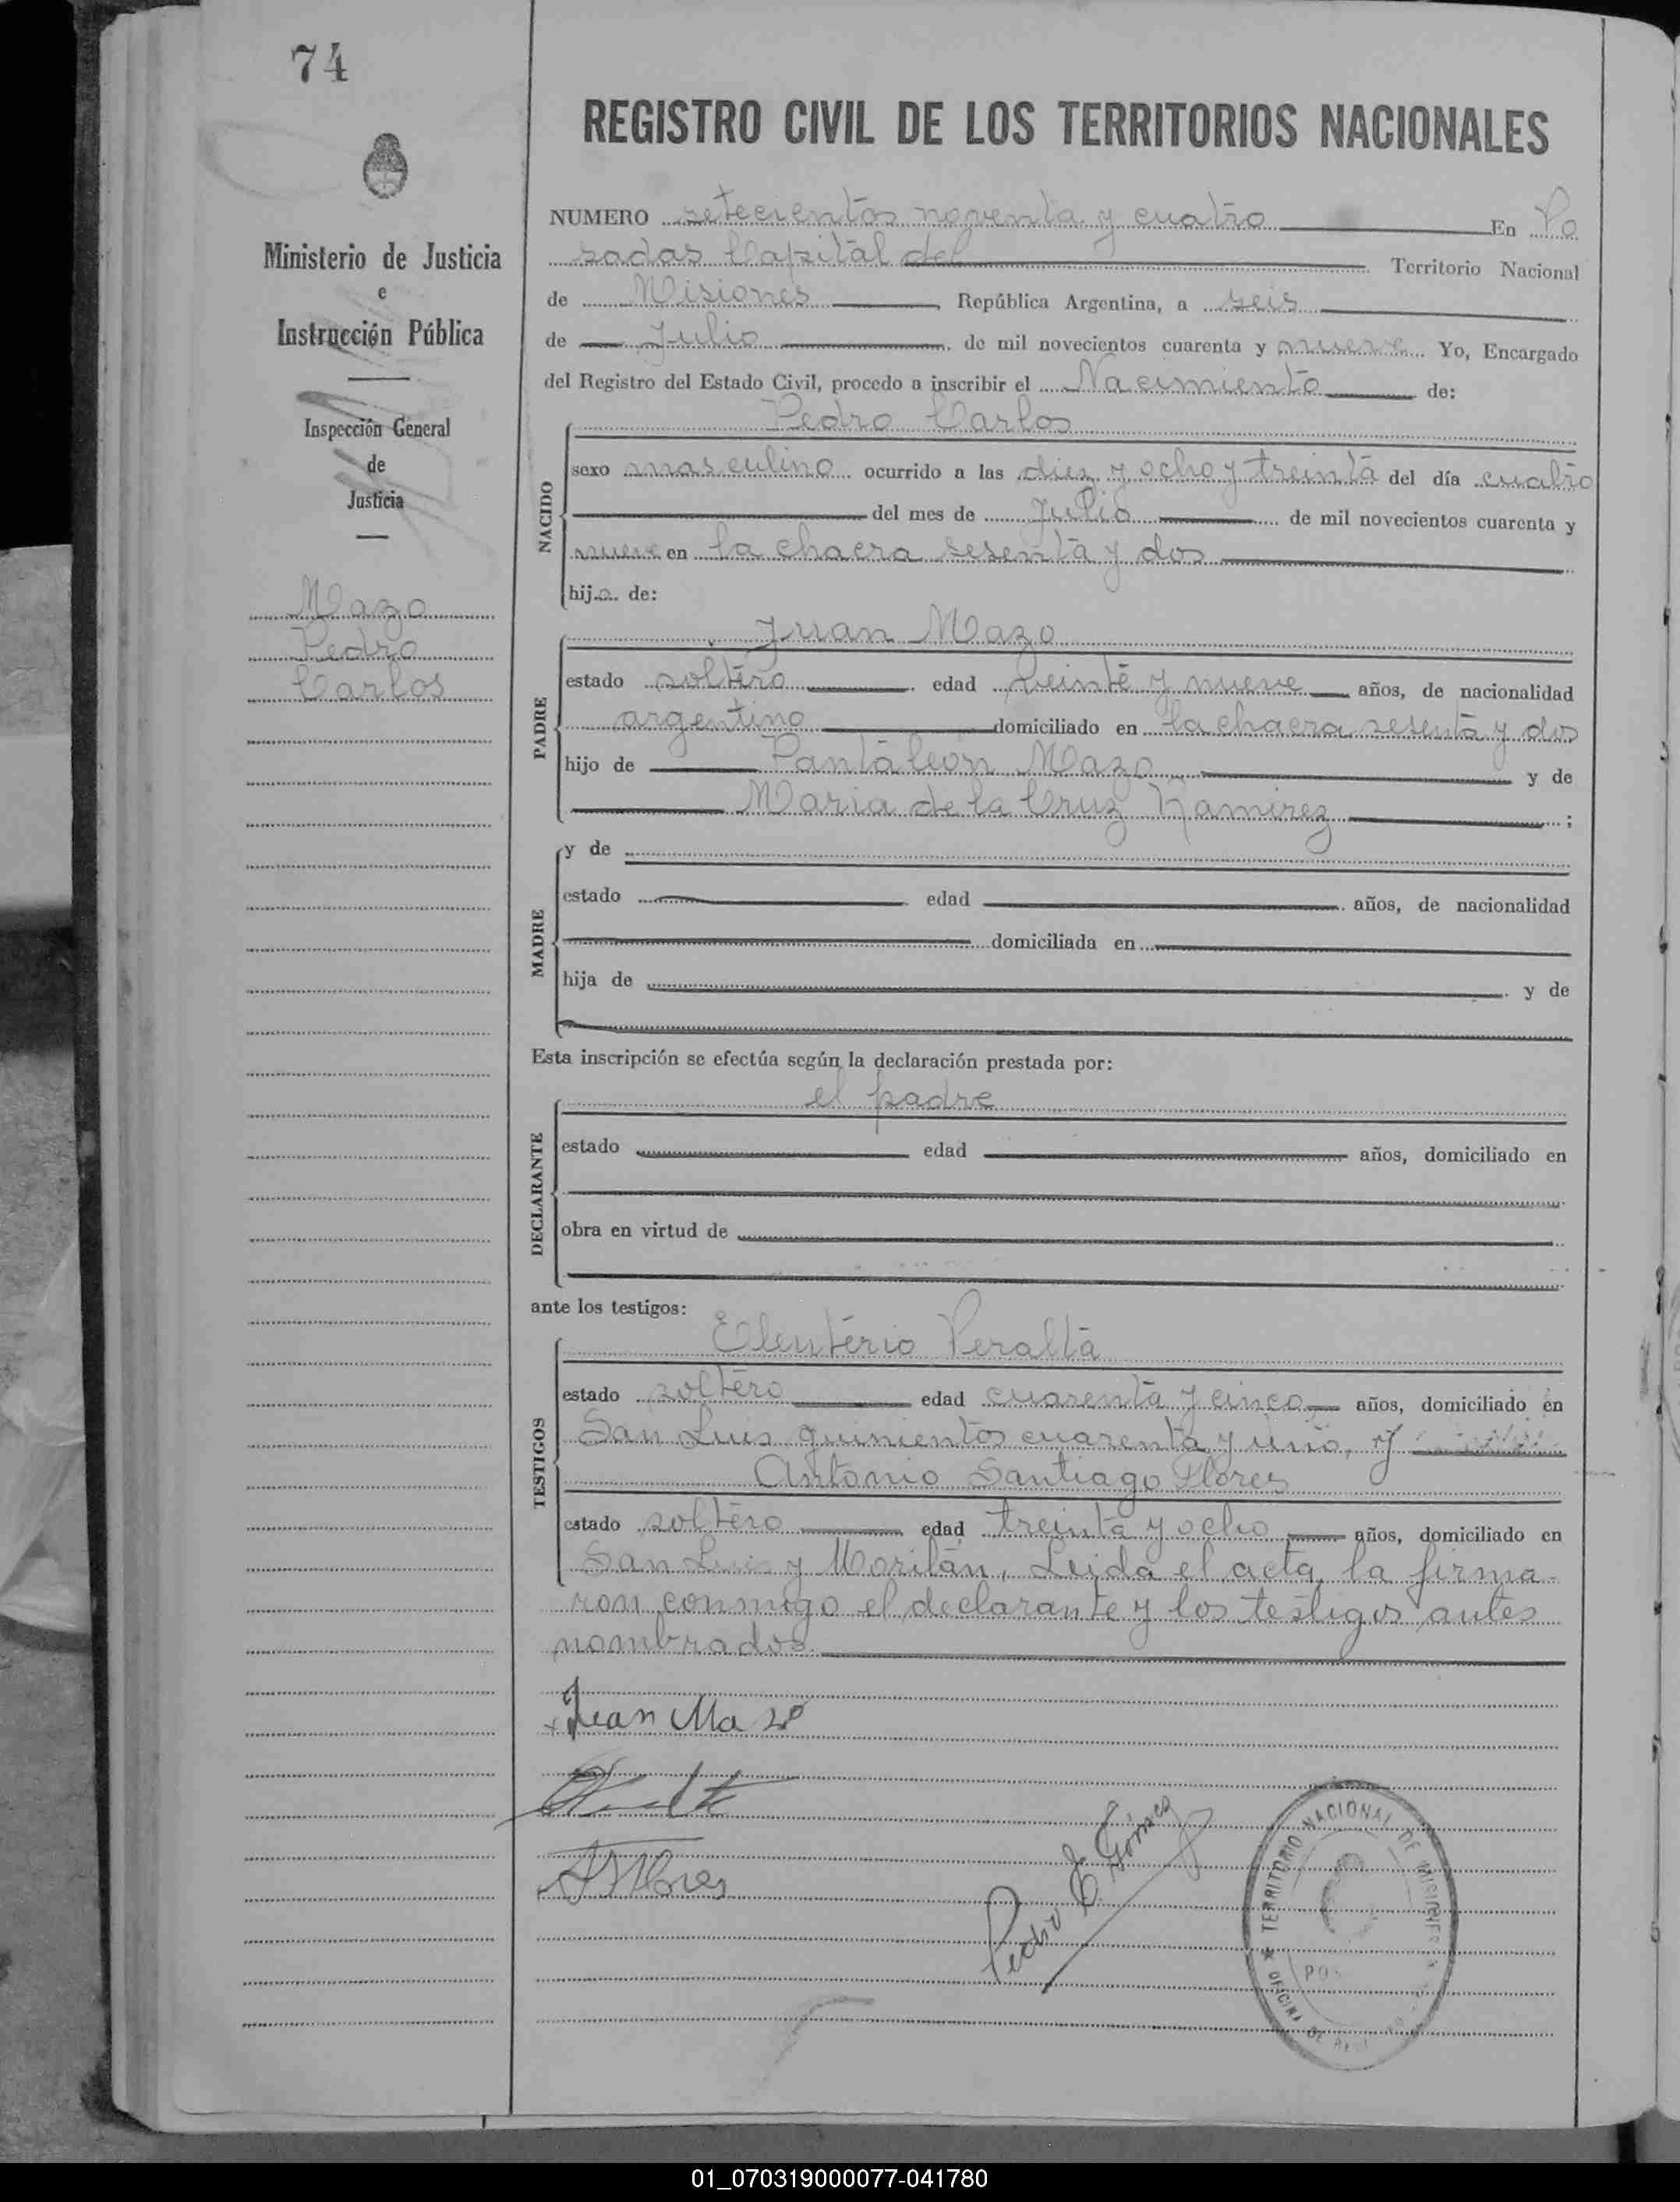 74
REGISTRO CIVIL DE LOS TERRITORIOS NACIONALES
Ministerio de Justicia
e
Instrucción Pública
Inspección General
de
Justicia
Mazo
Pedro
Carlos
NUMERO setecientos noventa y cuatro En Po
sadas Capital del Territorio Nacional
de Misiones, República Argentina, a seis
de Julio de mil novecientos cuarenta y nueve Yo, Encargado
del Registro del Estado Civil, procedo a inscribir el Nacimiento de:
NACIDO
Pedro Carlos
sexo masculino ocurrido a las diez y ocho y treinta del día cuatro
del mes de Julio de mil novecientos cuarenta y
nueve en la chacra sesenta y dos
hijo de:
PADRE
Juan Mazo
estado soltero edad veinte y nueve años, de nacionalidad
argentino domiciliado en la chacra sesenta y dos
hijo de Pantaleón Mazo y de
Maria de la Cruz Ramirez ;
MADRE
y de
estado edad años, de nacionalidad
domiciliada en
hija de y de
Esta inscripción se efectúa según la declaración prestada por:
DECLARANTE
el padre
estado edad años, domiciliado en
obra en virtud de
ante los testigos:
TESTIGOS
Eleuterio Peralta
estado soltero edad cuarenta y cinco años, domiciliado en
San Luis quinientos cuarenta y uno, y
Antonio Santiago Flores
estado soltero edad treinta y ocho años, domiciliado en
San Luis y Morilán, Leida el acta, la firma-
ron conmigo el declarante y los testigos antes
nombrados.
Juan Mazo
A S Flores
Pedro E. Gómez
TERRITORIO NACIONAL DE MISIONES
OFICINA DE
POS
01_070319000077-041780